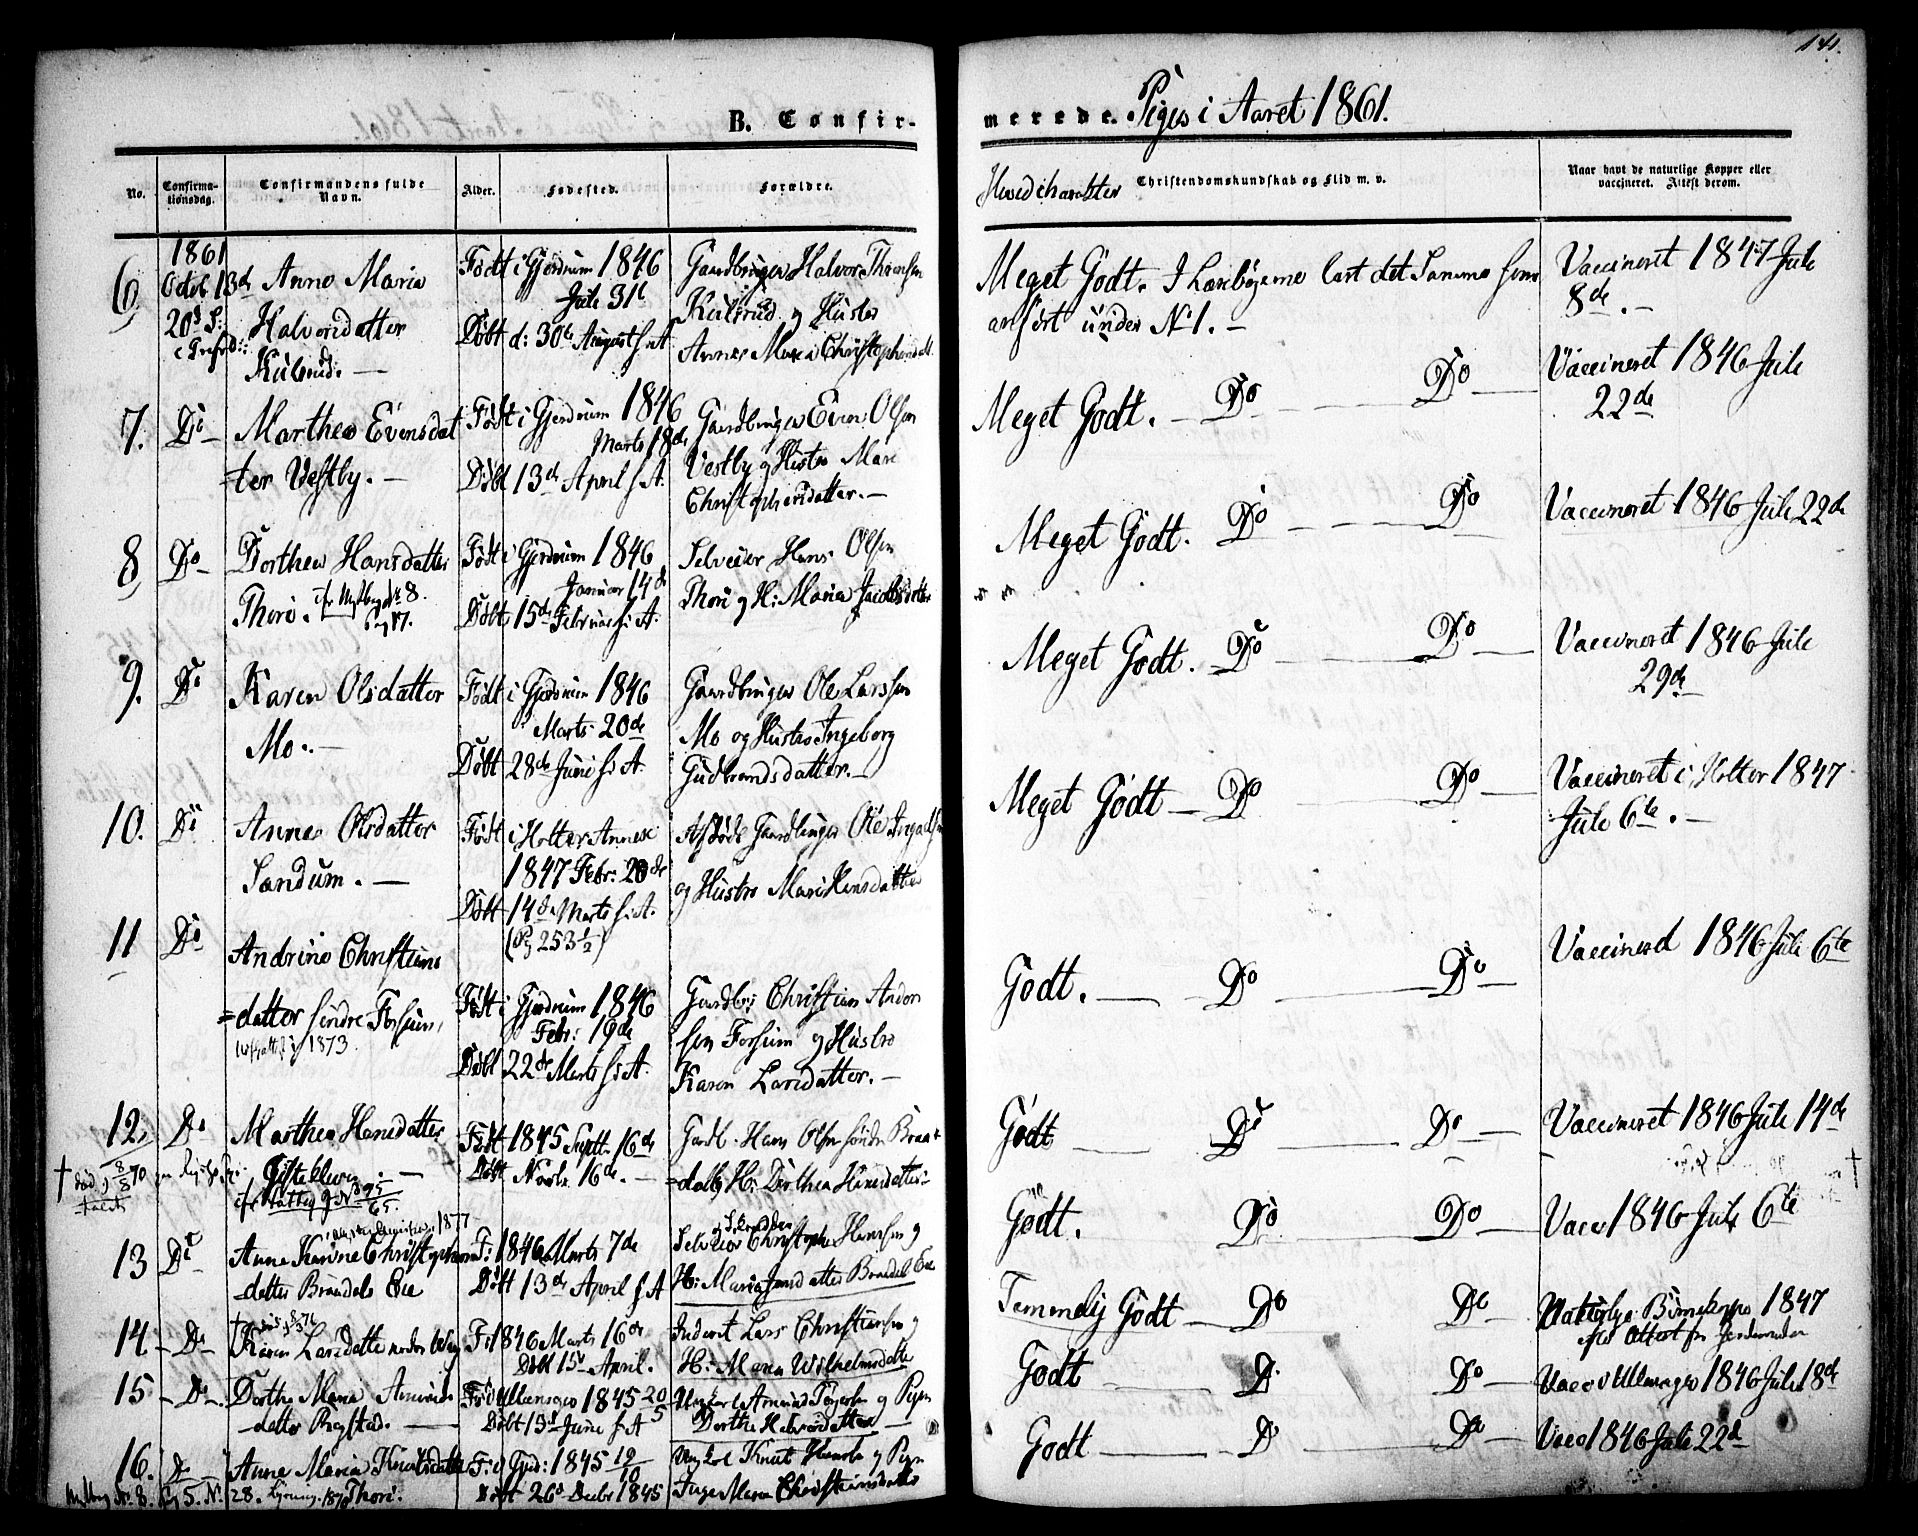 141.
B. Confir-
merede. Piger i Aaret 1861.
No.
Confirma-
tionsdag.
Confirmandens fulde
Navn.
Alder.
Fødested.
Forældre.
Hovedcharakter Christendomskundskab og Flid m. v.
Naar havt de naturlige Kopper eller
vaccineret. Attest derom.
1861
6, Octob 13de Anne Maria
20d S:
Halvorsdatter
Kulsrud. —
Født i Gjerdrum 1846
Juli 31te
Døbt d: 30te August s. A
Gaardbruger Halvor
Kulsrud og Hustro
Anne Maria Christophersdatt.
Meget Godt. I Lærebøgerne læst det Samme som
anført under No 1. —
Vaccineret 1847 Juli
8de. —
7. Do Marthea Evensdat
=ter Vestby. —
Født i Gjerdrum 1846
Marts 18de
Døbt 13de April s. A.
Gaardbruger Even Olsen
Vestby og Hustro Mari
Christophersdatter. —
Meget Godt. — Do — Do —
Vaccineret 1846 Juli
22de
8, Do Dorthea Hansdatter
Thori.
No 8.
Pag 17.
Født i Gjerdrum 1846
Januar 14de
Døbt 15de Februar s. A.
Selveier Hans Olsen
Thori og H: Maria Jacobsdatter
Meget Godt. Do — Do
Vaccineret 1846 Juli 22de
9. Do Karen Olsdatter
Mo. —
Født i Gjerdrum 1846
Marts 20de
Døbt 28de Juni s. A.
Gaardbruger Ole Larssen
Mo og Hustro Ingeborg
Gudbrandsdatter. —
Meget Godt. Do — Do —
Vaccineret 1846 Juli
29de
10. Do Anne Olsdatter
Sandum. —
Født i Holter Annex
1847 Febr: 20de
Døbt 14de Marts s. A.
(Pg 253½)
Afdøde Gaardbruger Ole
og Hustro Mari
Meget Godt — Do — Do —
Vaccineret i Holter 1847
Juli 6te. —
11 Do Andrine Christians
=datter søndre Fossum,
1873
Født i Gjerdrum 1846
Febr: 19de
Døbt 22de Marts s. A.
Gaardbr: Christian Ander
sen Fossum og Hustro
Karen Larsdatter. —
Godt. — Do — Do —
Vaccinerd 1846 Juli 6te
12, Do Marthea Hansdatter
† død 8/8 70
95/65.
Født 1845 Septr. 16de
Døbt Novbr. 16de. —
Gaardb. Hans Olsen søndre Bræn
=dal og H: Dorthea Hansdatter
Godt — Do — Do —
Vaccineret 1846 Juli 14de
1877
13 Do Anne Karine Christophers
datter Brændals Eie
F: 1846 Marts 7de
Døbt 13de April s. A
Selveier Christopher Hanssen og
H: Maria datter Brændals Eie
Godt. Do Do —
Vacc 1846 Juli 6te
14. — Do — Karen Larsdatter
F: 1846 Marts 16de
Døbt 15de April.
Inderst Lars Christiansen og
H: Maren Wilhelmsdatter
Temmelig Godt — Do Do —
Naturlige Børnekopper 1847
15 — Do — Dorthe Maria Amunds
datter Ragstad. —
F: i Ullensager 1845 20/5
Døbt 15de Juni s. A
Ungkarl Amund og Pigen
Dorthe Halvorsdatter —
Godt — D. Do —
Vacc i Ullensager 1846 Juli 18de
16. Do Anne Maria Knudsdatter
Thori.
F: i Gjerd: 1845 19/10
Døbt 26de Decbr 1845
Ungkarl Knut og Pigen
Inger Maria Christiansdatter
Godt — Do Do —
Vacc 1846 Juli 22de
No. 8. Pg 5. No. 28.